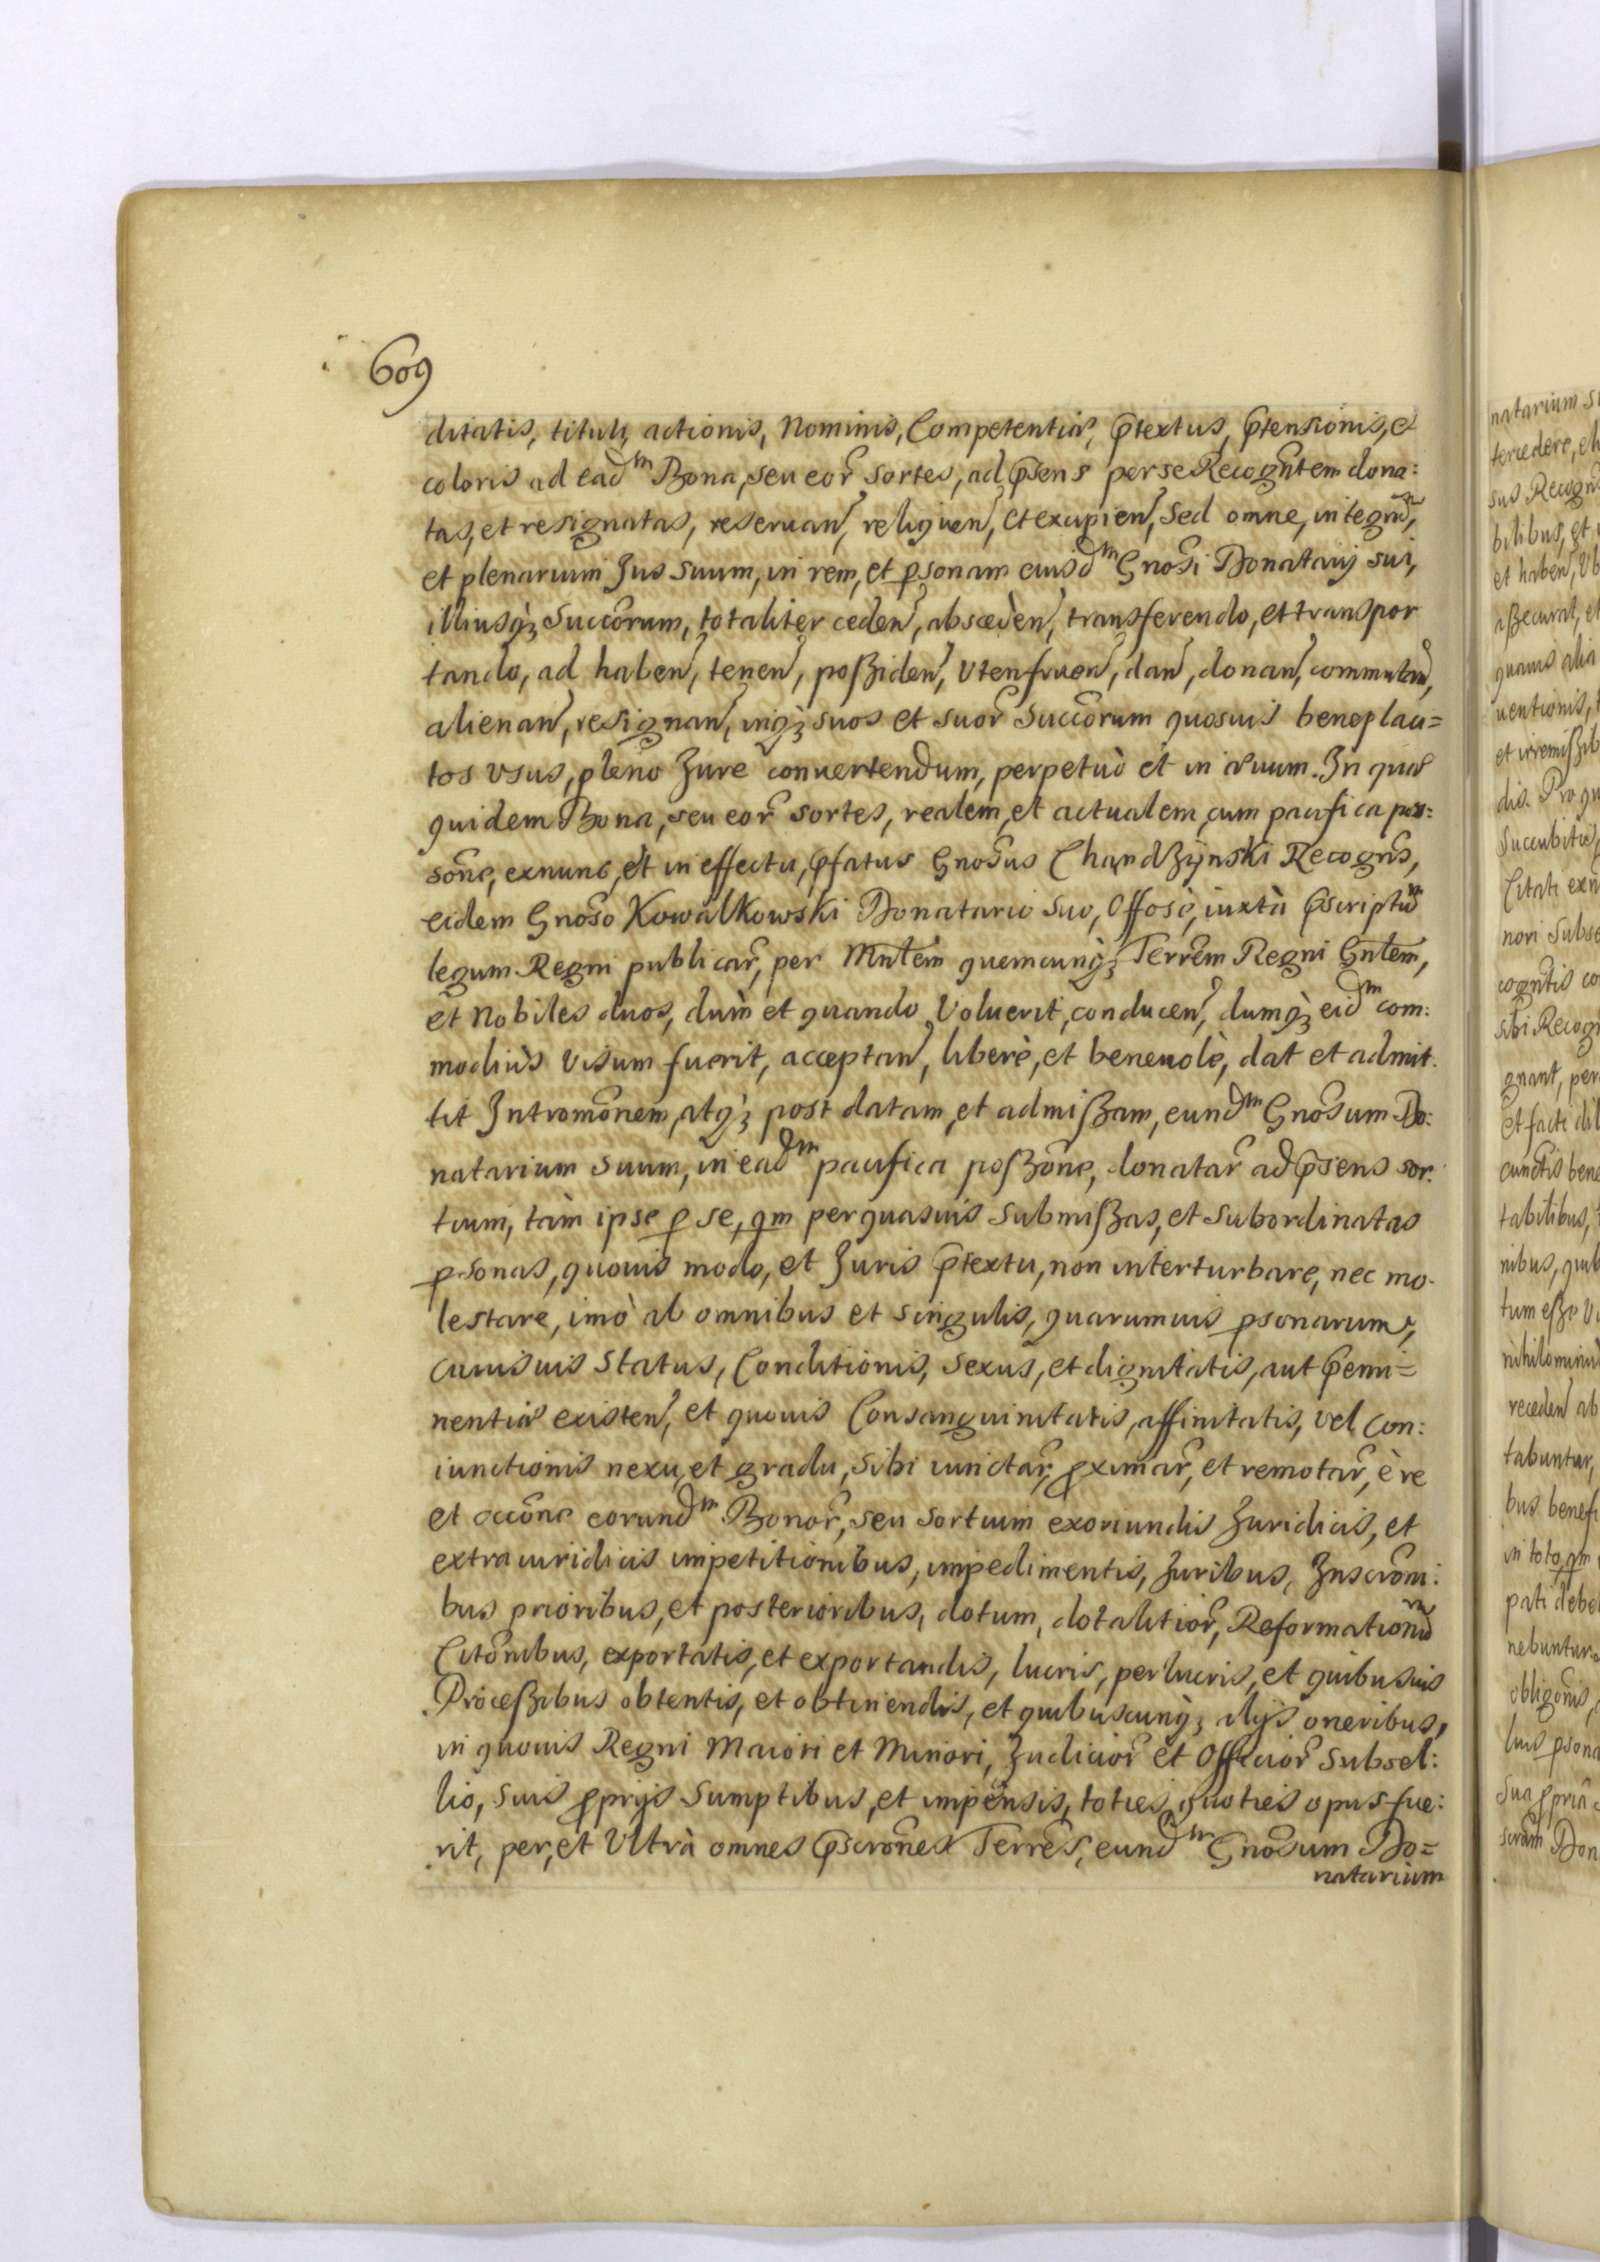 609
ditatis, tituli, actionis, Nominis, Competentiæ, p̃textus, p̃tensionis, et
coloris ad eadᵐ Bona, seu eor̃ sortes, ad p̃sens per se Recognt̃em dona:
tas, et resignatas, reseruan̄, relinquen̄, et excipien̄, Sed omne, integrũ,
et plenarium Jus suum, in rem, et p̱sonam eiusdᵐ Gnosi Donatarij sui,
illiusq̀ꝫ Succõrum, totaliter ceden̄, absceden̄, transferendo, et transpor
tando, ad haben̄, tenen̄, poszsiden̄, Utenfruen̄, dan̄, donan̄, commutan̄,
alienan̄, resignan̄, inq̀ꝫ suos et suor̃ Succõrum quosuis beneplaci=
tos Usus, pleno Jure conuertendum, perpetuò et in æuum. In quæ
quidem Bona, seu eor̃ sortes, realem, et actualem, cum pacifica pos:
sõne, exnunc, et in effectu, p̃fatus Gnosus Chandzÿnski Recogñs,
eidem Gnoso Kowalkowski Donatario suo, Offosè, iuxtà p̃scriptũ
legum Regni publicar̃, per Mnłem quemcunq̀ꝫ Terrẽm Regni Gnłem,
et Nobiles duos, dùm et quando Voluerit, conducen̄, dumq̀ꝫ eidᵐ com:
modiùs Uisum fuerit, acceptan̄, liberè, et beneuolè, dat et admit.
tit Intromõnem, atq̀ꝫ post datam, et admiszam, eundᵐ Gnosum Do:
natarium suum, in eadᵐ pacifica poszõne, donatar̃ ad p̃sens sor:
tium, tàm ipse p̱ se, qm̃ per quasuis submiszas, et subordinatas
p̱sonas, quouis modo, et Juris p̃textu, non interturbare, nec mo-
lestare, imò ab omnibus et singulis, quarumuis p̱sonarum,
cuiusuis Status, Conditionis, Sexus, et dignitatis, aut p̃emi=
nentiæ existen̄, et quouis Consanguinitatis, affinitatis, vel con:
iunctionis nexu, et gradu, sibi iunctar̃, ꝓximar̃, et remotar̃, è re
et occõne eorundᵐ Bonor̃, seu sortium exoriundis Juridicis, et
extraiuridicis impetitionibus, impedimentis, Juribus, Inscrõni:
bus prioribus, et posterioribus, dotum, dotalitior̃, Reformationũ
Citõnibus, exportatis, et exportandis, lucris, perlucris, et quibusuis
Proceszibus obtentis, et obtinendis, et quibuscunq̀ꝫ alijs oneribus,
in quouis Regni Maiori et Minori, Judicior̃ et Officior̃ subsel:
lio, suis ꝓprijs Sumptibus, et impensis, toties quoties opus fue:
rit, per, et Ultrà omnes p̃scrõnes Terrẽs, eundᵐ Gnosum Do=
natarium